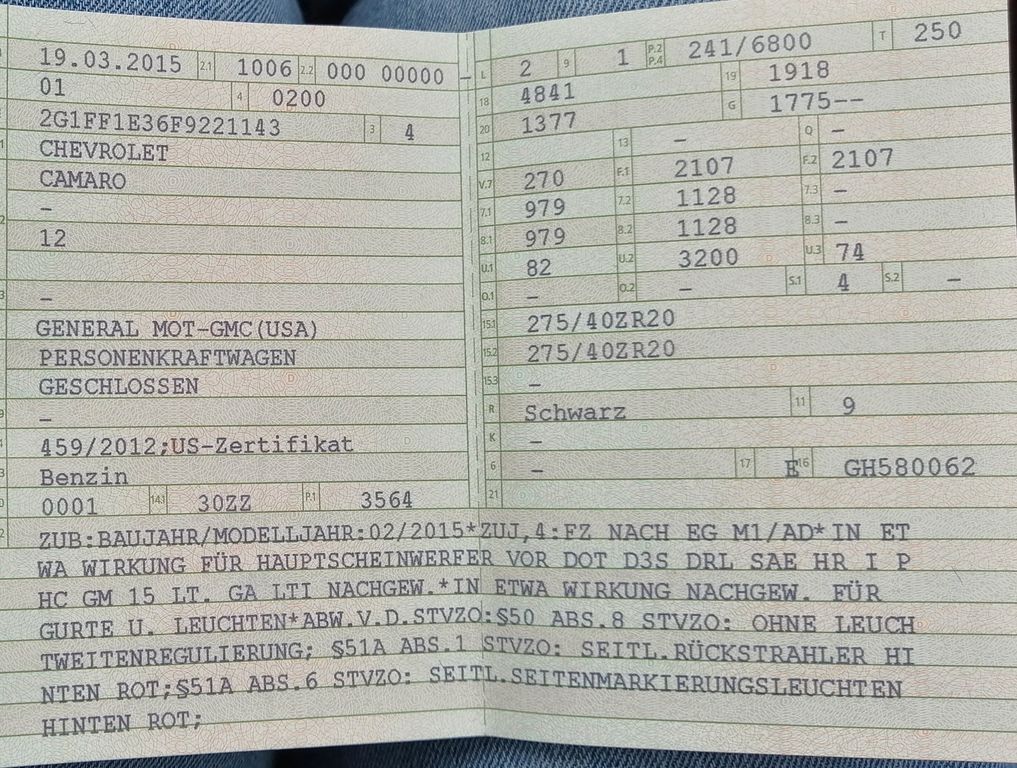 19.03.2015 2.1 1006 2.2 000 00000 –
01 4 0200
2G1FF1E36F9221143 3 4
CHEVROLET
CAMARO
–
12
–
GENERAL MOT-GMC(USA)
PERSONENKRAFTWAGEN
GESCHLOSSEN
–
459/2012;US-Zertifikat
Benzin
0001 14.1 30ZZ P.1 3564
L 2 9 1 P.2 P.4 241/6800 T 250
18 4841 19 1918
20 1377 G 1775--
12 13 – Q –
V.7 270 F.1 2107 F.2 2107
7.1 979 7.2 1128 7.3 –
8.1 979 8.2 1128 8.3 –
U.1 82 U.2 3200 U.3 74
O.1 – O.2 – S.1 4 S.2 –
15.1 275/40ZR20
15.2 275/40ZR20
15.3 –
R Schwarz 11 9
K –
6 – 17 E 16 GH580062
21
ZUB:BAUJAHR/MODELLJAHR:02/2015*ZUJ,4:FZ NACH EG M1/AD*IN ET
WA WIRKUNG FÜR HAUPTSCHEINWERFER VOR DOT D3S DRL SAE HR I P
HC GM 15 LT. GA LTI NACHGEW.*IN ETWA WIRKUNG NACHGEW. FÜR
GURTE U. LEUCHTEN*ABW.V.D.STVZO:§50 ABS.8 STVZO: OHNE LEUCH
TWEITENREGULIERUNG; §51A ABS.1 STVZO: SEITL.RÜCKSTRAHLER HI
NTEN ROT;§51A ABS.6 STVZO: SEITL.SEITENMARKIERUNGSLEUCHTEN
HINTEN ROT;